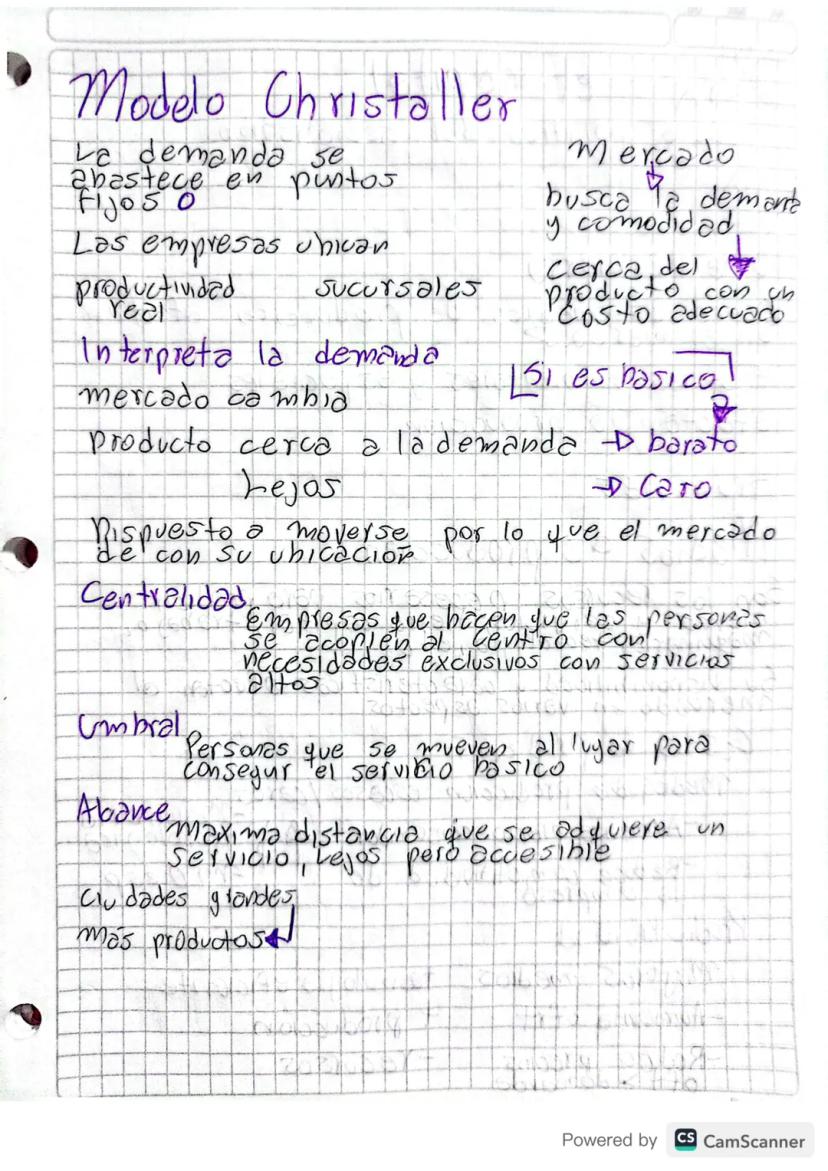 Modelo Christaller
La demanda se
abastece en puntos
fijos o
Las empresas ubican
productividad sucursales
real
Mercado
busca la demanda
y comodidad
cerca del
producto con un
costo adecuado
Interpreta la demanda
Si es basico
mercado cambia
producto cerca a la demanda → barato
Lejos → Caro
Dispuesto a moverse por lo que el mercado
de con su ubicación
Centralidad
Empresas que hacen que las personas
se acoplen al centro con
necesidades exclusivos con servicios
altos
Umbral
Personas que se mueven al lugar para
consegur el servicio basico
Abance
maxima distancia que se adquiere un
servicio, Lejos pero accesible
Ciudades grandes
más productos
Powered by CS CamScanner